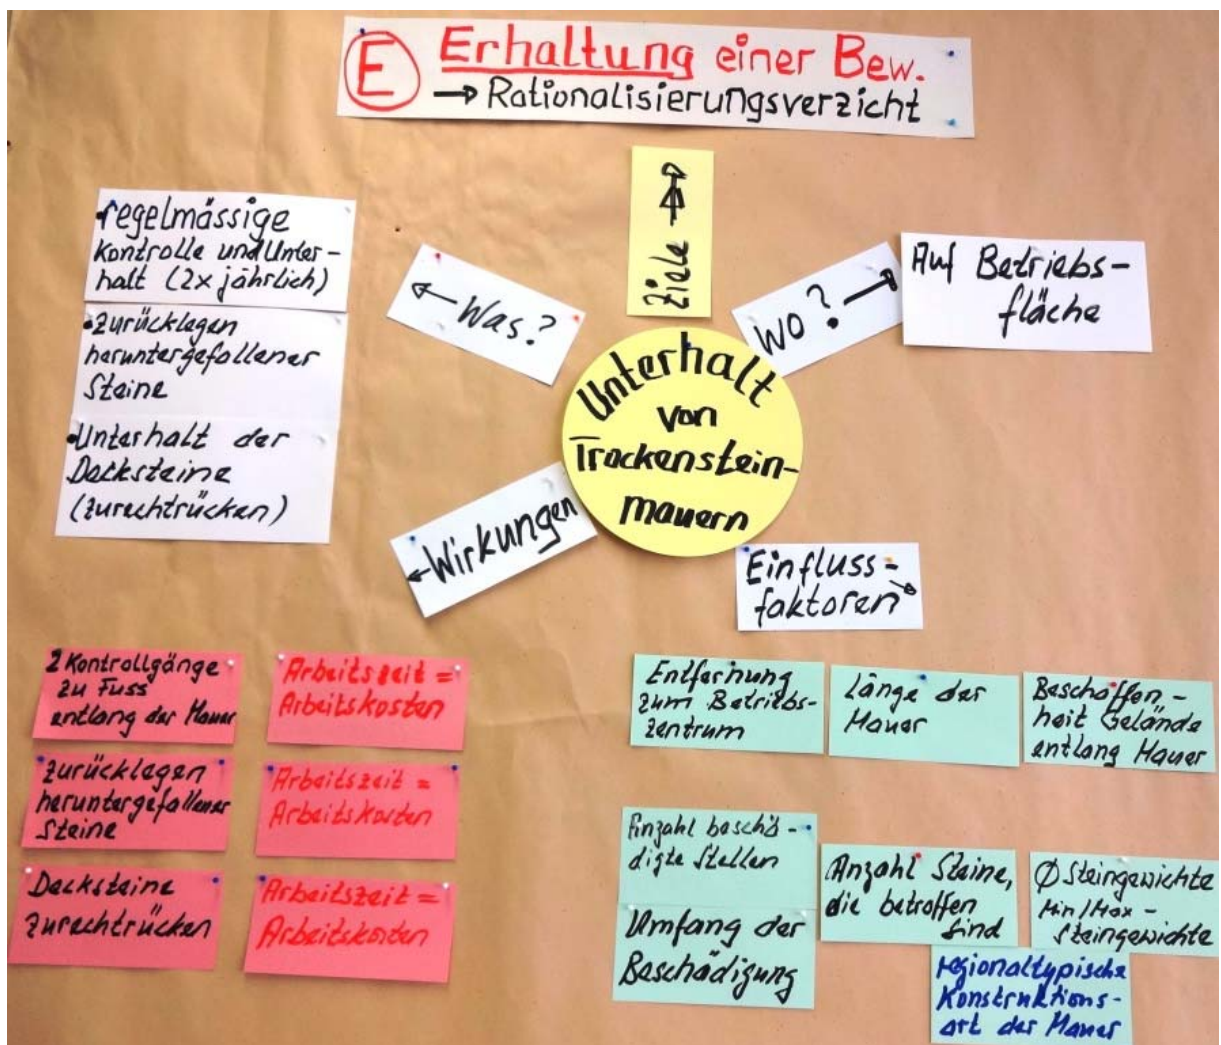 E Erhaltung einer Bew.
→ Rationalisierungsverzicht
Ziele →
• regelmässige
Kontrolle und Unter-
halt (2x jährlich)
• Zurücklegen
heruntergefallener
Steine
• Unterhalt der
Decksteine
(zurechtrücken)
← Was?
Wo? →
Auf Betriebs-
fläche
Unterhalt
von
Trockenstein-
mauern
← Wirkungen
Einfluss-
faktoren →
2 Kontrollgänge
zu Fuss
entlang der Mauer
Arbeitszeit =
Arbeitskosten
Zurücklegen
heruntergefallener
Steine
Arbeitszeit =
Arbeitskosten
Decksteine
zurechtrücken
Arbeitszeit =
Arbeitskosten
Entfernung
zum Betriebs-
zentrum
Länge der
Mauer
Beschaffen-
heit Gelände
entlang Mauer
Anzahl beschä-
digte Stellen
Umfang der
Beschädigung
Anzahl Steine,
die betroffen
sind
Ø Steingewichte
Min/Max-
Steingewichte
regionaltypische
Konstruktions-
art der Mauer